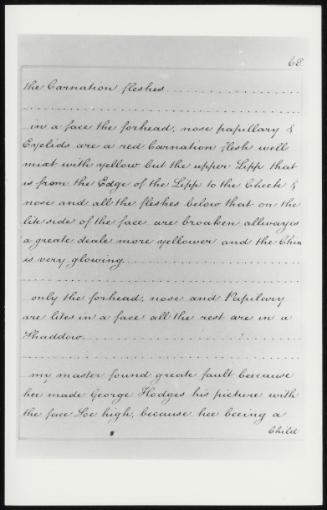 68.
the Carnation fleshes
in a face the forhead, nose papillary &
Eyelids are a red Carnation flesh well
mixt with yellow but the upper Lipp that
is from the Edge of the Lipp to the Cheek &
nose and all the fleshes below that on the
lite side of the face are broaken allwayes
a greate deale more yellower and the Chin
is very glowing
only the forhead, nose and Papilary
are lites in a face all the rest are in a
Shaddow
my master found greate fault beecause
hee made George Hodges his picture with
the face Soe high, because hee beeing a
Child